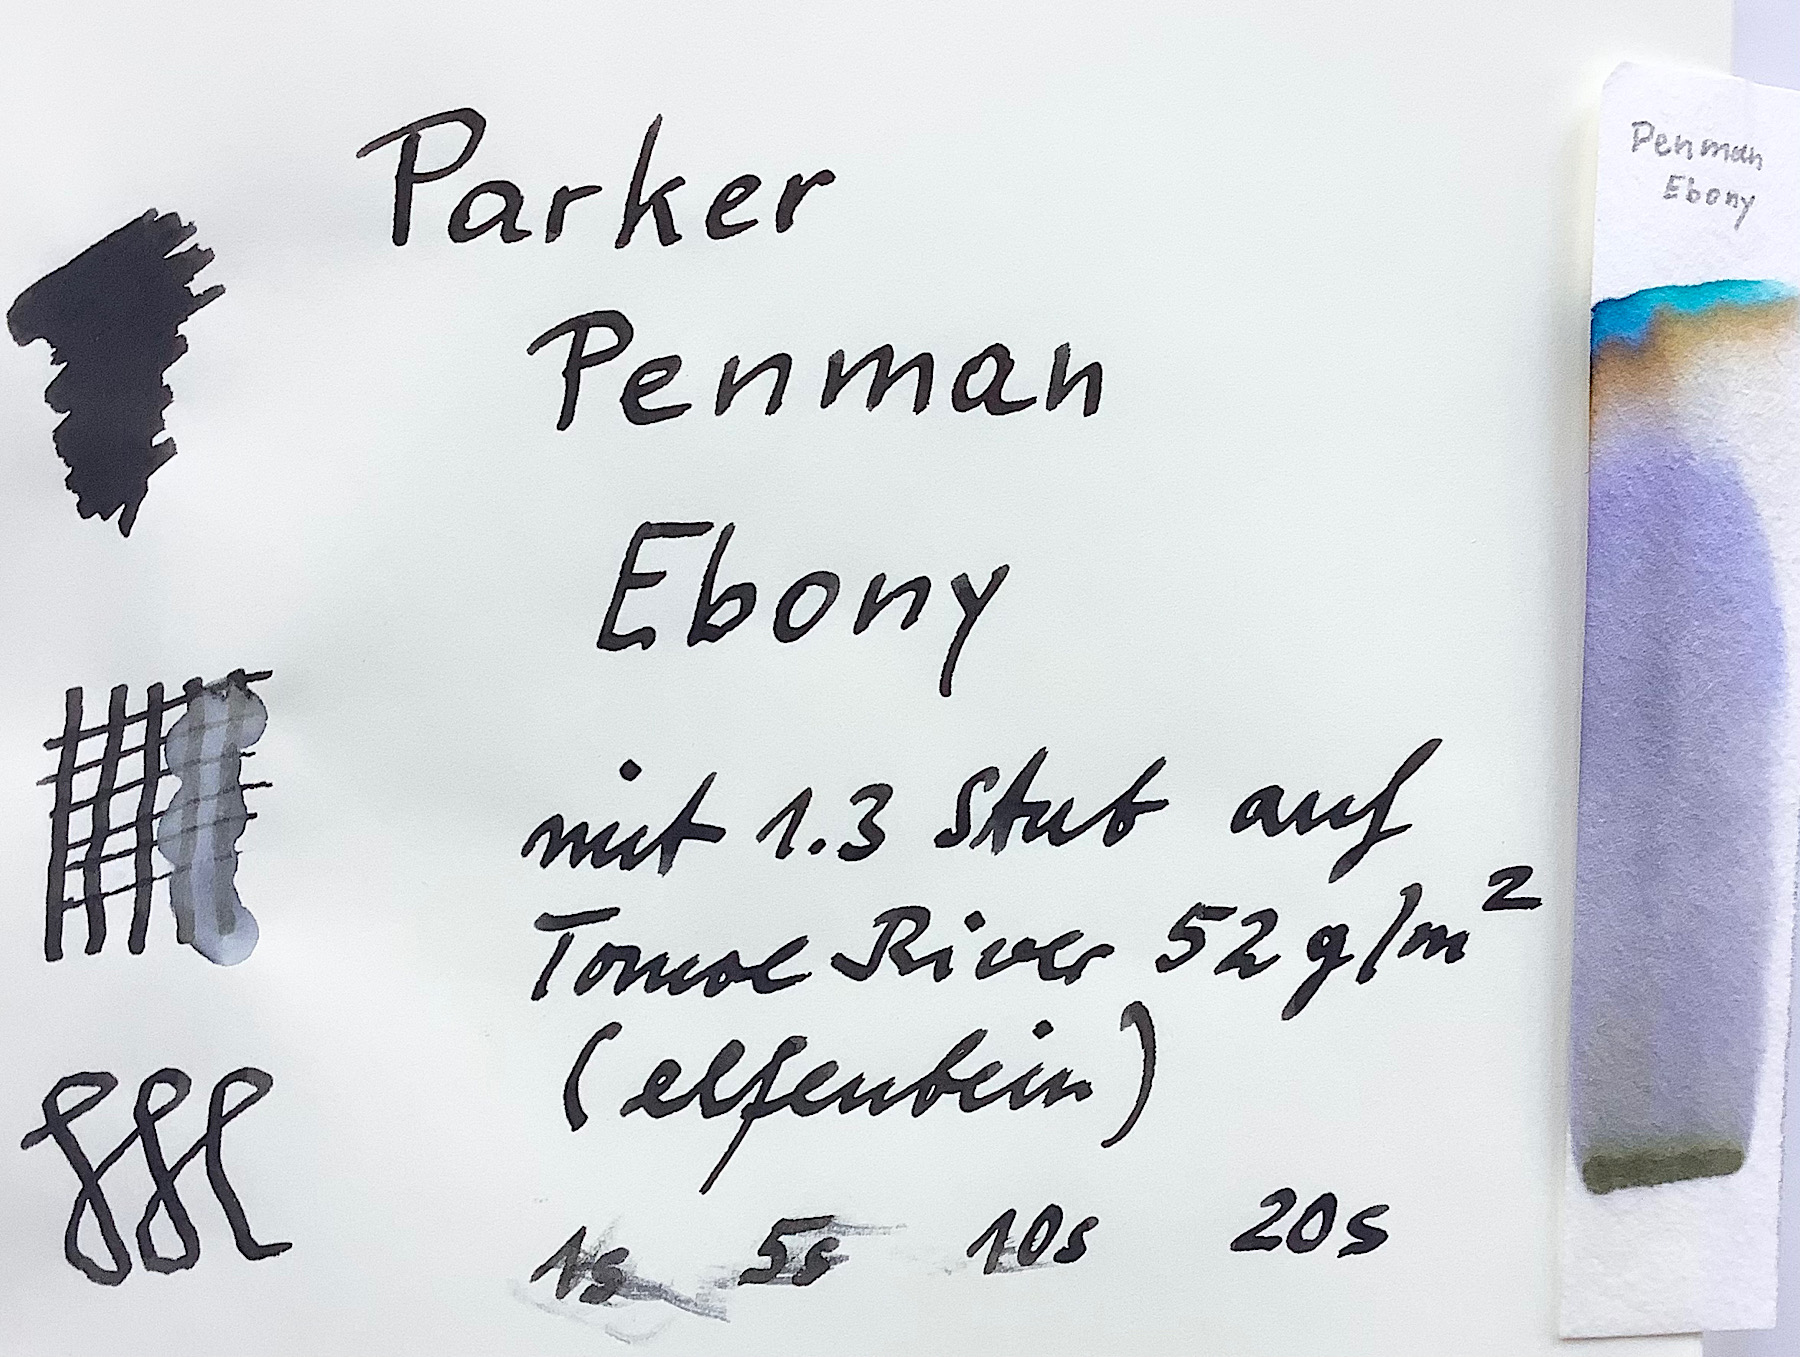 Parker
Penman
Ebony
mit 1.3 Stub auf
Tomoe River 52 g/m²
(elfenbein)
1s 5s 10s 20s
Penman
Ebony